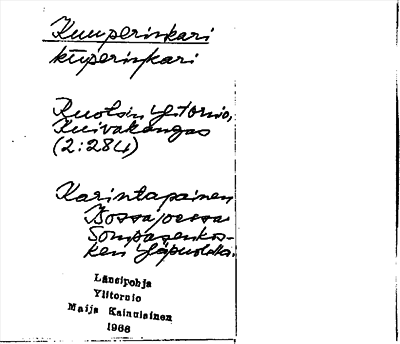 Kuuperinkari
kūperiŋkari
Ruotsin Ylitornio,
Kuivakangas
(2:284)
Karintapainen
joessa
Sompasenkos-
ken yläpuolella.
Länsipohja
Ylitornio
Maija Kainulainen
1966